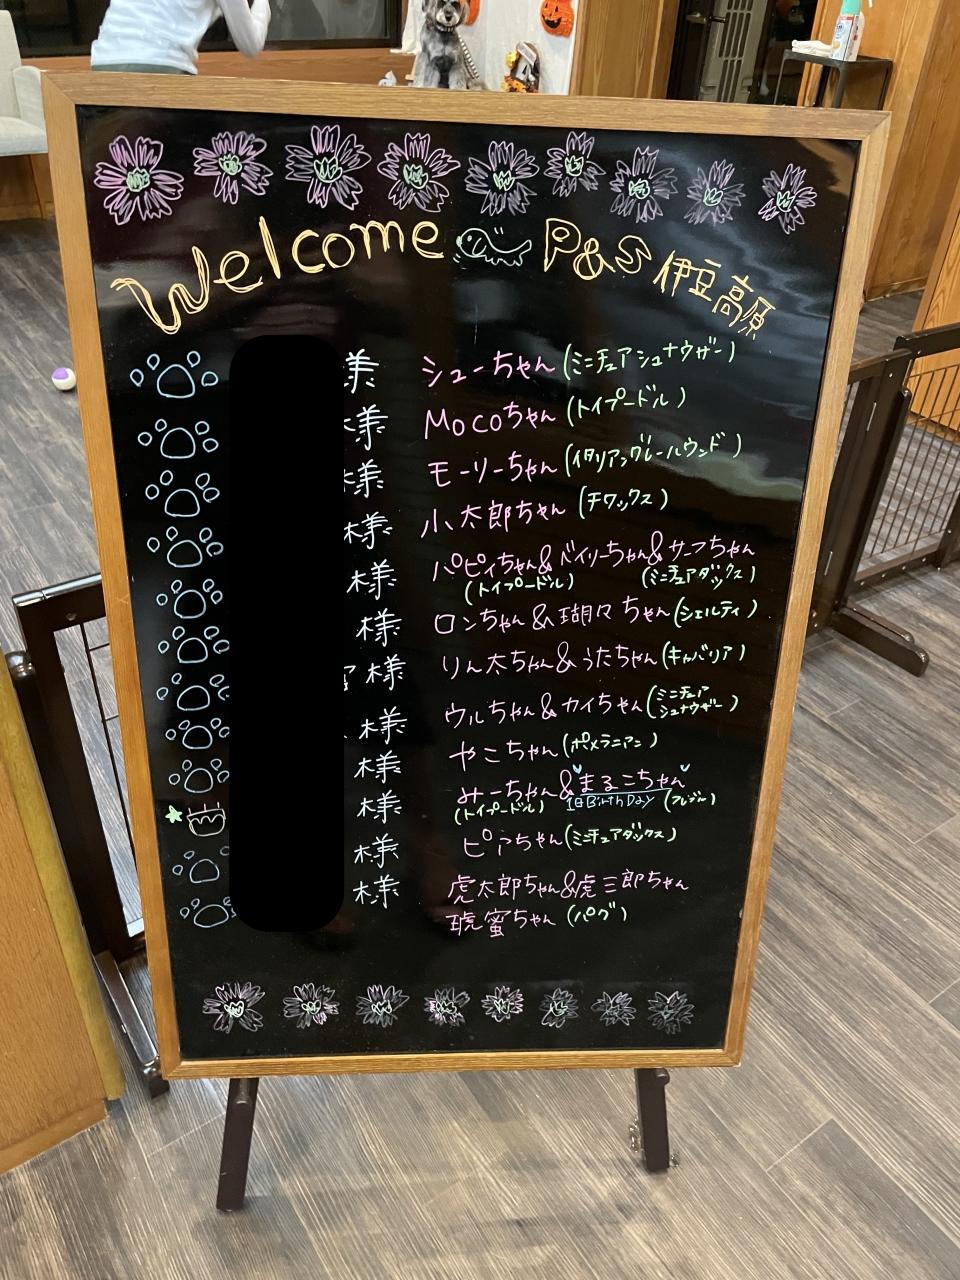 Welcome P&S 伊豆高原
様 シューちゃん (ミニチュアシュナウザー)
様 Mocoちゃん (トイプードル)
様 モーリーちゃん (イタリアングレーハウンド)
様 小太郎ちゃん (チワックス)
様 パピィちゃん&ベイリーちゃん&サーフちゃん
(トイプードル) (ミニチュアダックス)
様 ロンちゃん&瑚々ちゃん (シェルティ)
様 りん太ちゃん&うたちゃん (キャバリア)
様 ウルちゃん&カイちゃん (ミニチュアシュナウザー)
様 やこちゃん (ポメラニアン)
様 みーちゃん&まるこちゃん
(トイプードル) 1日BirthDay (フレブル)
様 ピアちゃん (ミニチュアダックス)
様 虎太郎ちゃん&虎三郎ちゃん
琥蜜ちゃん (パグ)